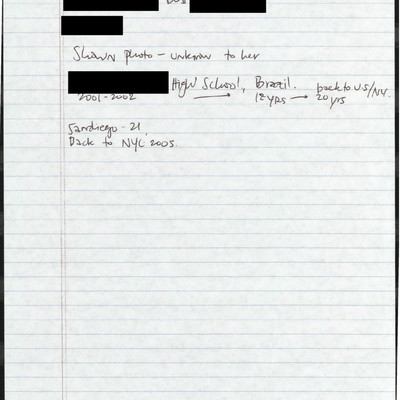 DOB
Shown photo - unknown to her
High School, Brazil. back to US/NY.
2001-2002 → 12 yrs → 20 yrs
Sandiego - 21.
Back to NYC 2005.